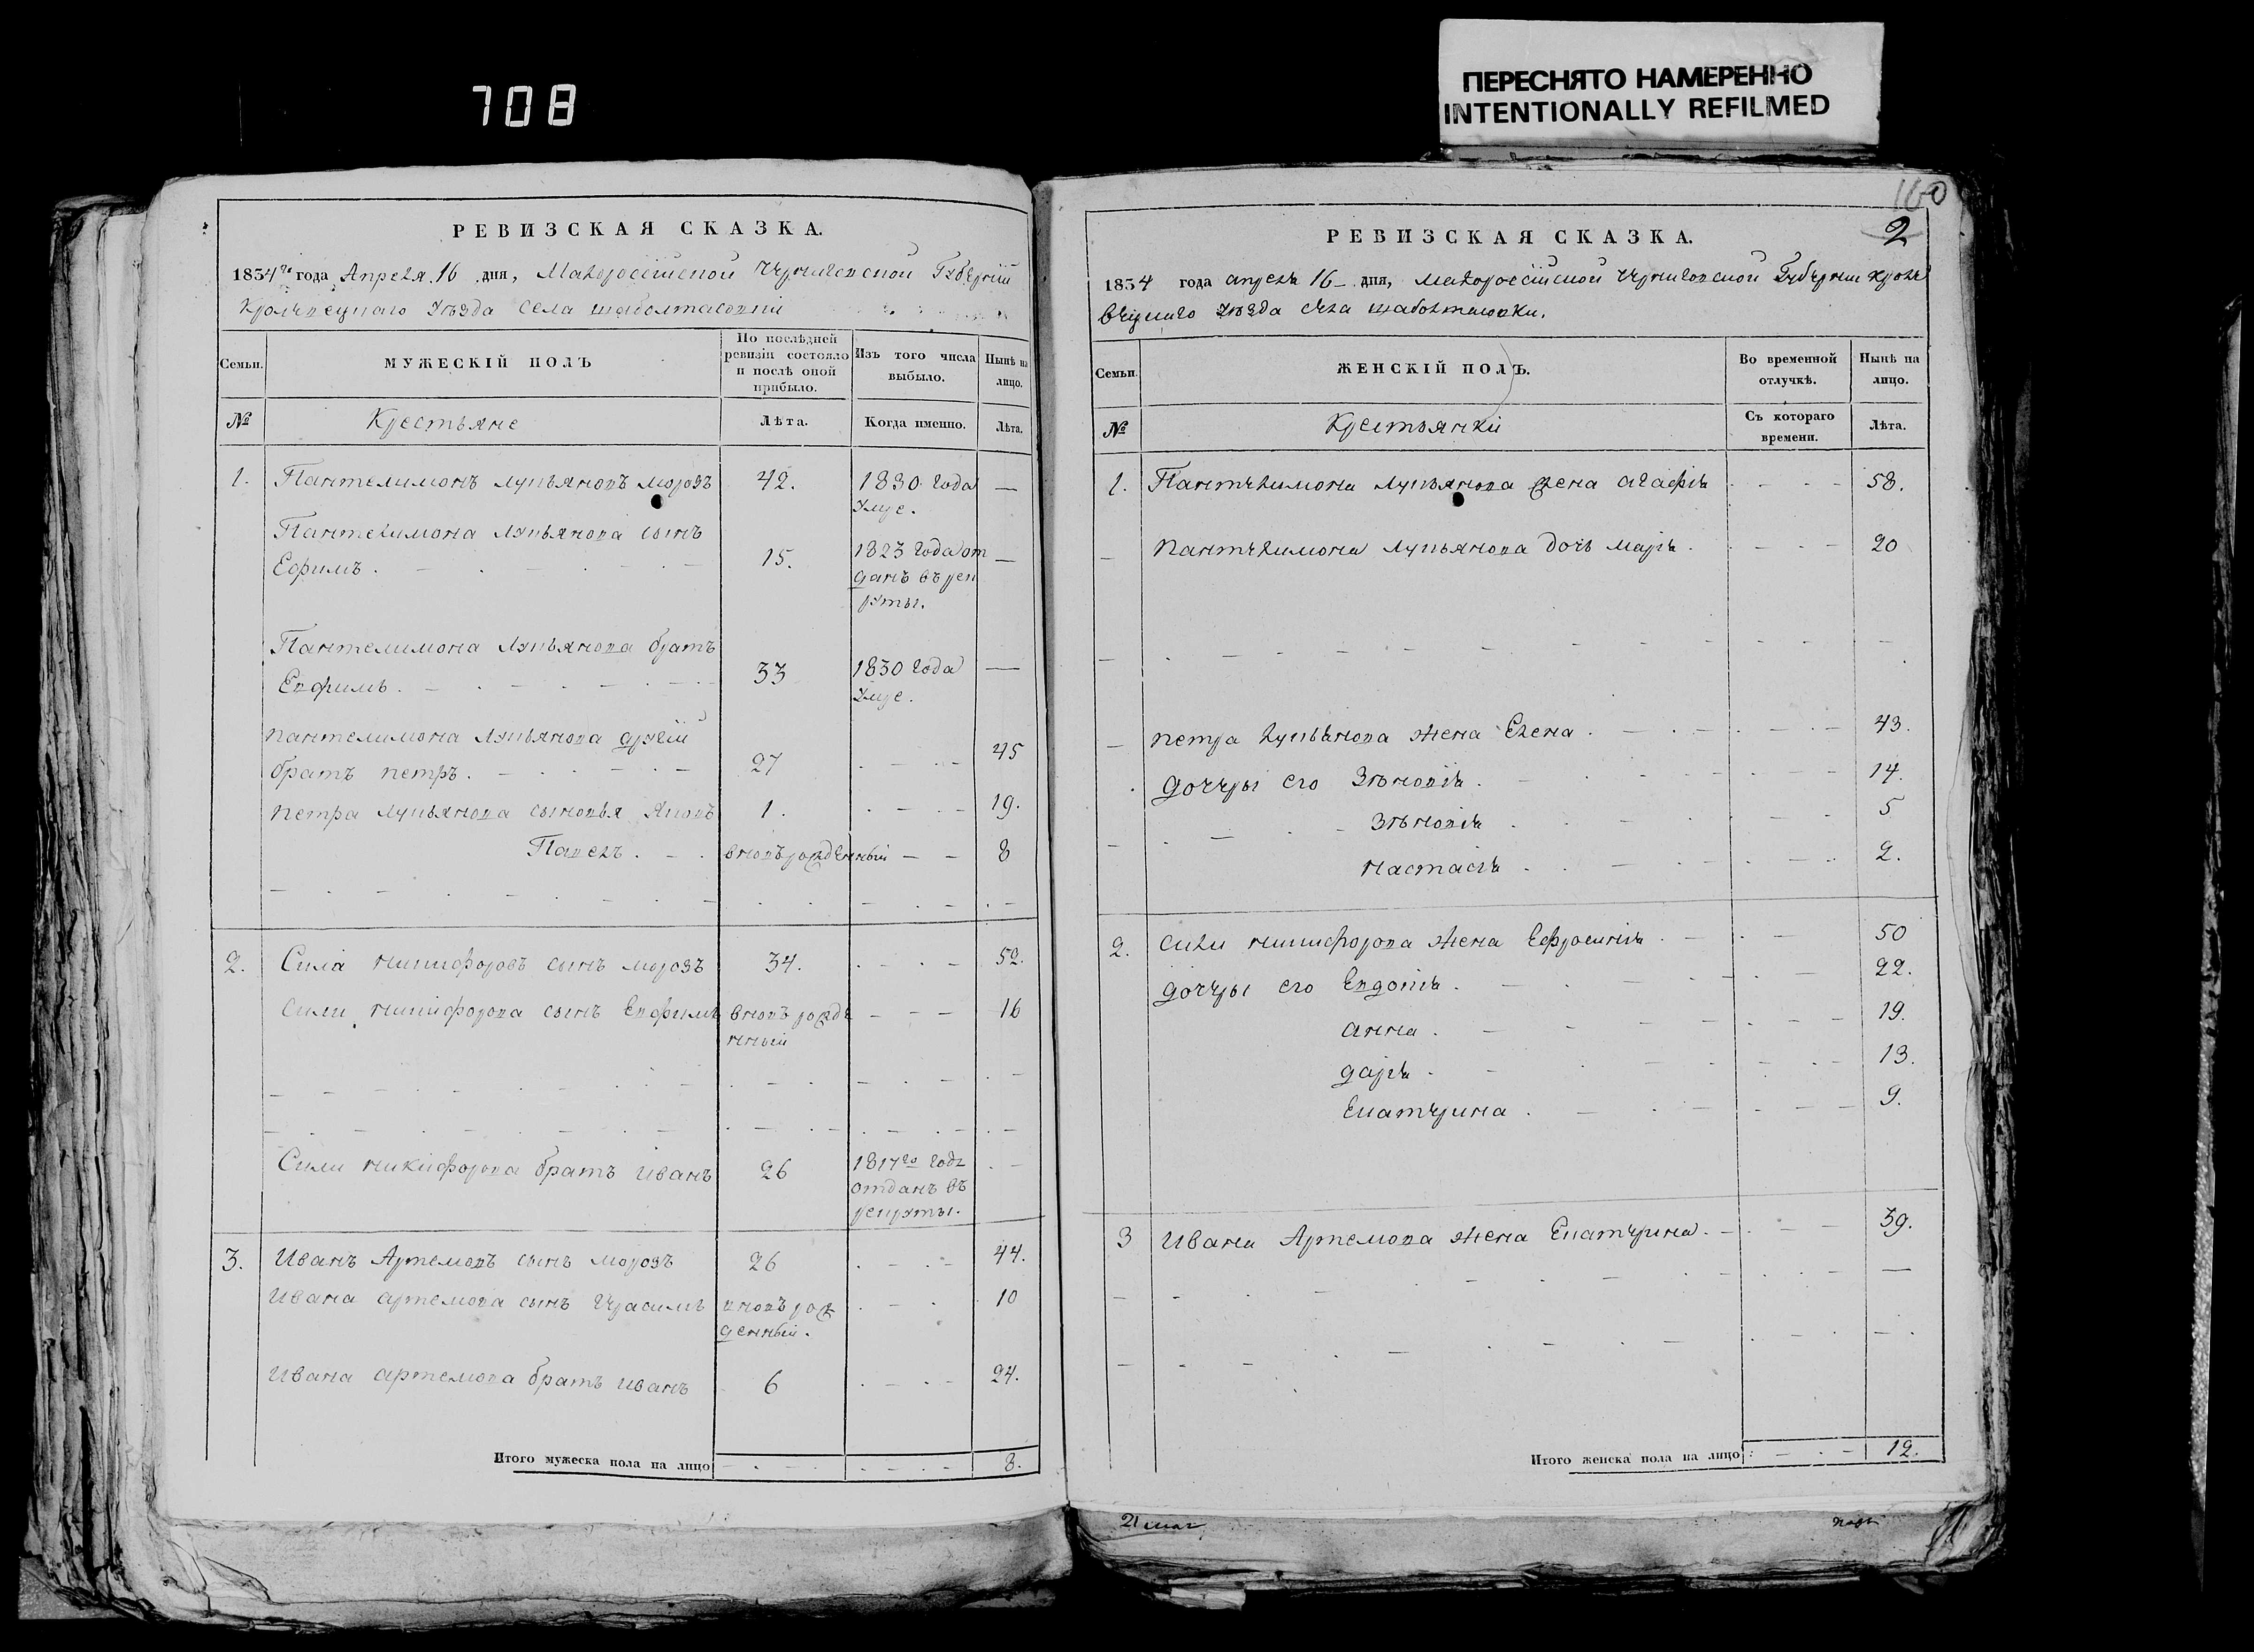 708
ПЕРЕСНЯТО НАМЕРЕННО
INTENTIONALLY REFILMED
РЕВИЗСКАЯ СКАЗКА.
1834го года Апреля 16 дня, Малоросійской Черниговской Губерніи
Кролевецкаго уѣзда села
Семьи.
МУЖЕСКІЙ ПОЛЪ
По послѣдней
ревизіи состояло
и послѣ оной
прибыло.
Изъ того числа
выбыло.
Нынѣ на
лицо.
№
Крестьяне
Лѣта.
Когда именно.
Лѣта.
1. Пантелимонъ Лукьяновъ морозъ 42. 1830 года —
умре.
Пантелимона Лукьянова сынъ
Ефимъ. 15. 1823 года от —
данъ въ рек
руты.
Пантелимона Лукьянова братъ
Евфимъ. 33 1830 года —
умре.
пантелимона Лукьянова другій
братъ петръ. 27 45
петра Лукьянова сыновья Яковъ 1. 19.
Павелъ. вновърожденный 8
2. Сила никифоровъ сынъ морозъ 34. 52.
Сили никифорова сынъ Евфимъ вновъ рожде 16
нный
Сили никифорова братъ иванъ 26 1817го года
отданъ въ
рекруты.
3. Иванъ Артемовъ сынъ морозъ 26 44.
Ивана артемова сынъ Герасимъ вновъ рож 10
денный.
Ивана артемова братъ иванъ 6 24.
Итого мужеска пола на лицо 8.
160
2
РЕВИЗСКАЯ СКАЗКА.
1834 года апреля 16 дня, малоросійской Черниговской Губернии кроле
вецкаго уѣзда села
Семьи.
ЖЕНСКІЙ ПОЛЪ.
Во временной
отлучкѣ.
Нынѣ на
лицо.
№
Крестьянки
Съ котораго
времени.
Лѣта.
1. Пантелимона Лукьянова жена агафія 58.
пантелимона Лукьянова дочь марія 20
петра лукьянова жена Елена 43.
дочери его Зѣновія 14.
Зѣновія 5
настасія 2.
2. сили никифорова жена Ефросинія 50
дочери его Евдокія 22.
анна 19.
дарія 13.
Екатерина 9.
3 Ивана Артемова жена Екатерина 39.
Итого женска пола на лицо 12.
21